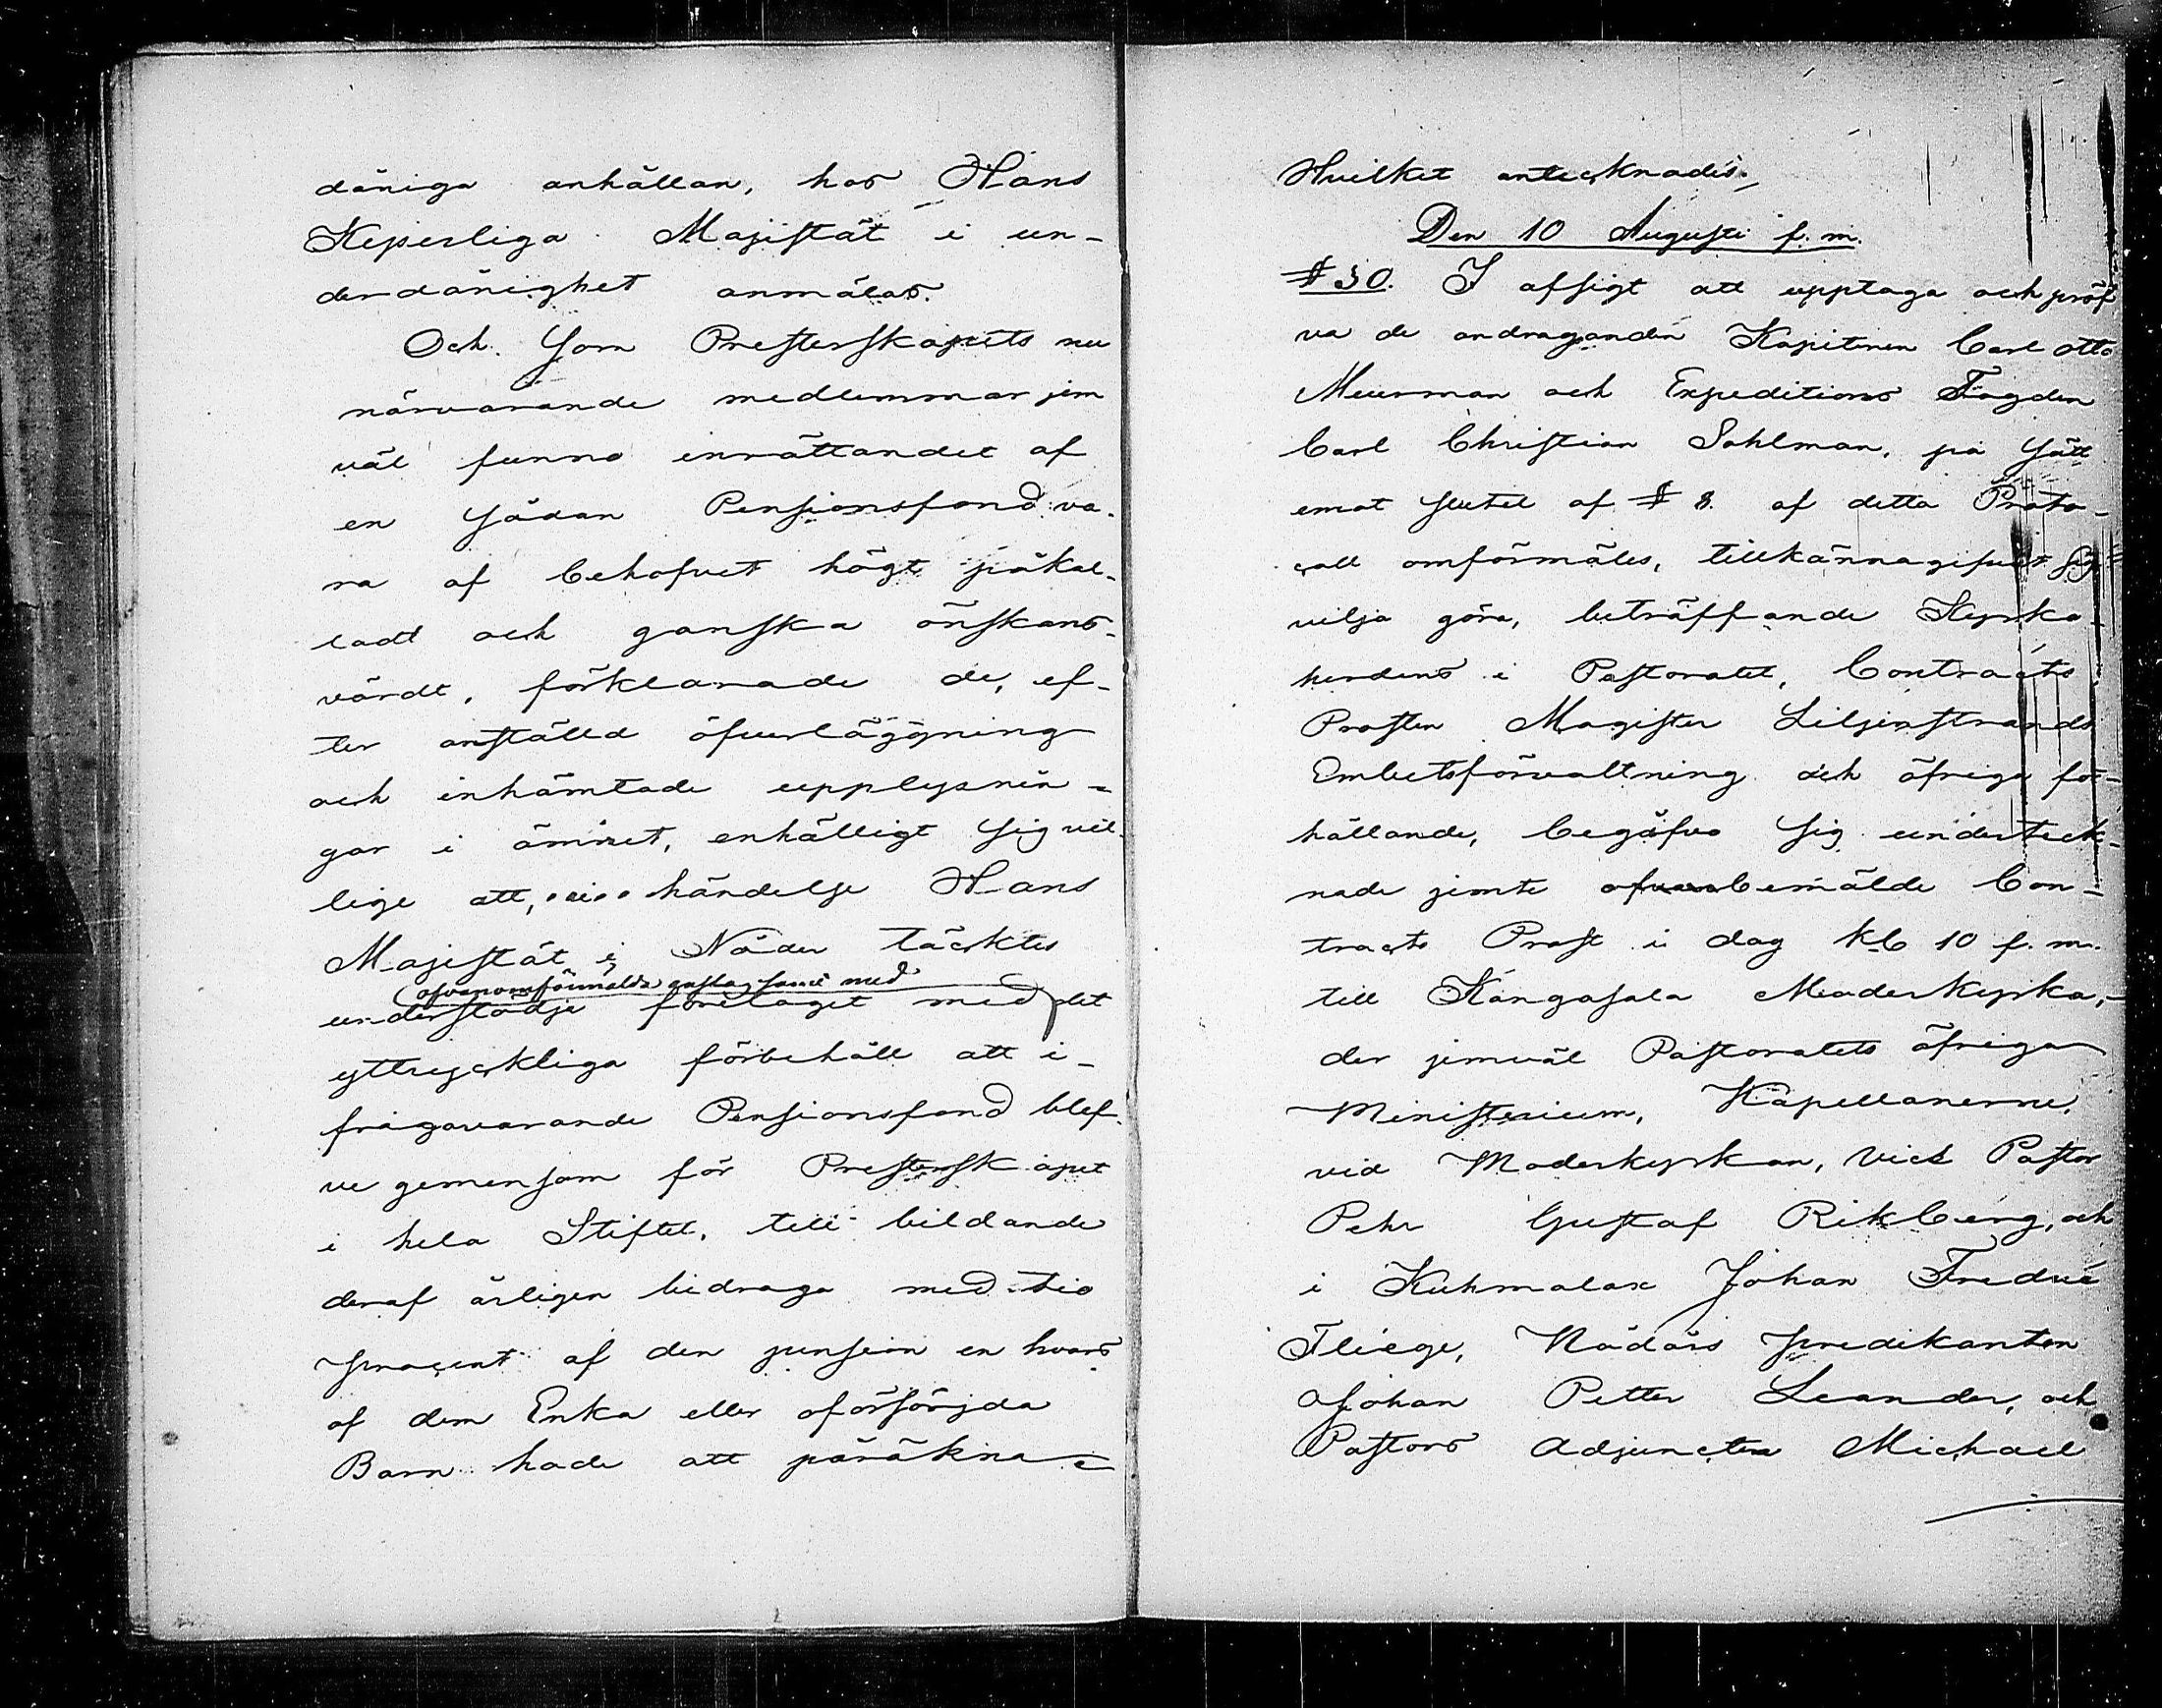 däniga anhållan, hos Hans
Kejserliga Majestät i un-
derdånighet anmälas.
Och som Presterskapets nu
närvarande medlemmar jem
väl funno inrättandet af
en sådan Pensionsfond va-
ra af behofvet högt påkal-
ladt och ganska önskans-
värdt, förklarade de, ef-
ter anställd öfverläggning
och inhämtade upplysnin-
gar i ämnet, enhälligt sig vil-
lige att, i händelse Hans
Majestät i Nåder täcktes
ofvanomförmälda anslag samt med
understödja företaget med det
yttryckliga förbehåll att i-
frågavarande Pensionsfond blef-
ve gemensam för Presterskapet
i hela Stiftet, till bildande
deraf årligen bidraga med tio
procent af den pension en hvars
af dem Enka eller oförsörjda
Barn hade att påräkna
Hvilket antecknades.
Den 10 Augusti f. m.
§ 30. I afsigt att upptaga och pröf
va de andraganden Kapitenen Carl Otto
Meurman och Expeditions Fogden
Carl Christian Sahlman, på sätt
emot slutet af § 8. af detta Proto-
coll omförmäles, tillkännagifvit sig
vilja göra, beträffande Kyrko-
herdens i Pastoratet, Contracts
Prosten Magister Liljenstrands
Embetsförvaltning och öfriga för-
hållande, begåfvo sig underteck-
nade jemte ofvanbemälde Con-
tracts Prost i dag kl 10 f. m.
till Kangasala Moderkyrka,
der jemväl Pastoratets öfriga
Ministerium, Kapellanerne,
vid Moderkyrkan, Vice Pastor
Pehr Gustaf Rikberg, och
i Kuhmalax Johan Fredric
Fliege, Nådårs predikanten
Johan Petter Leander, och
Pastors Adjuncten Michael